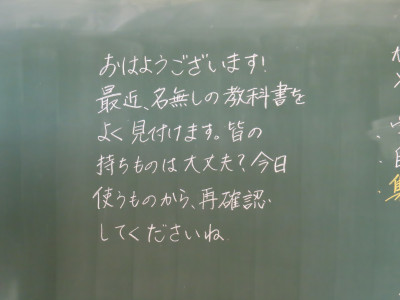 おはようございます!
最近、名無しの教科書を
よく見付けます。皆の
持ちものは大丈夫?今日
使うものから、再確認
してくださいね